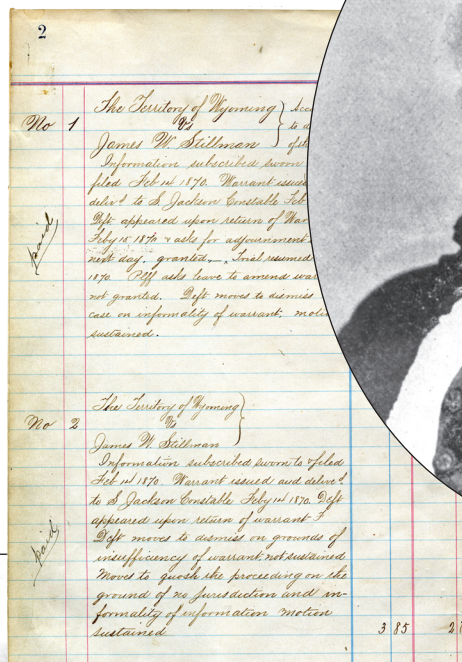 2
The Territory of Wyoming } Acc
No 1 Vs to d
James W. Stillman of
Information subscribed sworn
filed Feb 14 1870. Warrant issued
deliv'd to S. Jackson Constable Feb
Deft appeared upon return of War
Feby 15 1870 & asks for adjournment
next day. granted. Trial resumed
paid
1870. Plff asks leave to amend war
not granted. Deft moves to dismiss
case on informality of warrant; motio
sustained.
The Territory of Wyoming }
No 2 Vs
James W Stillman
Information subscribed sworn to & filed
Feb 14 1870. Warrant issued and deliver'd
to S. Jackson Constable Feby 14 1870. Deft
appeared upon return of warrant
paid
Deft moves to dismiss on grounds of
insefficency of warrant, not sustained
Moves to quosh the proceeding on the
ground of no Jurisdiction and in-
formality of information motion
sustained 3 85 2